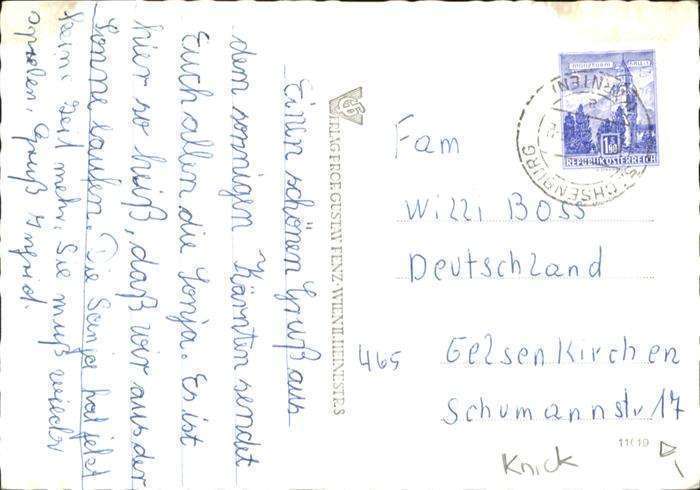 Einen schönen Gruß aus
dem sonnigen Kärnten sendet
Euch allen die Sonja. Es ist
hier so heiß, daß wir aus der
Sonne laufen. Die Sonja hat jetzt
keine Zeit mehr. Sie muß wieder
spielen. Gruß Ingrid.
VERLAG PROF. GUSTAV FENZ · WIEN II. HEINESTR. 5
REPUBLIK ÖSTERREICH
Fam
Willi Boss
Deutschland
465 Gelsenkirchen
Schumannstr 17
11019
Knick